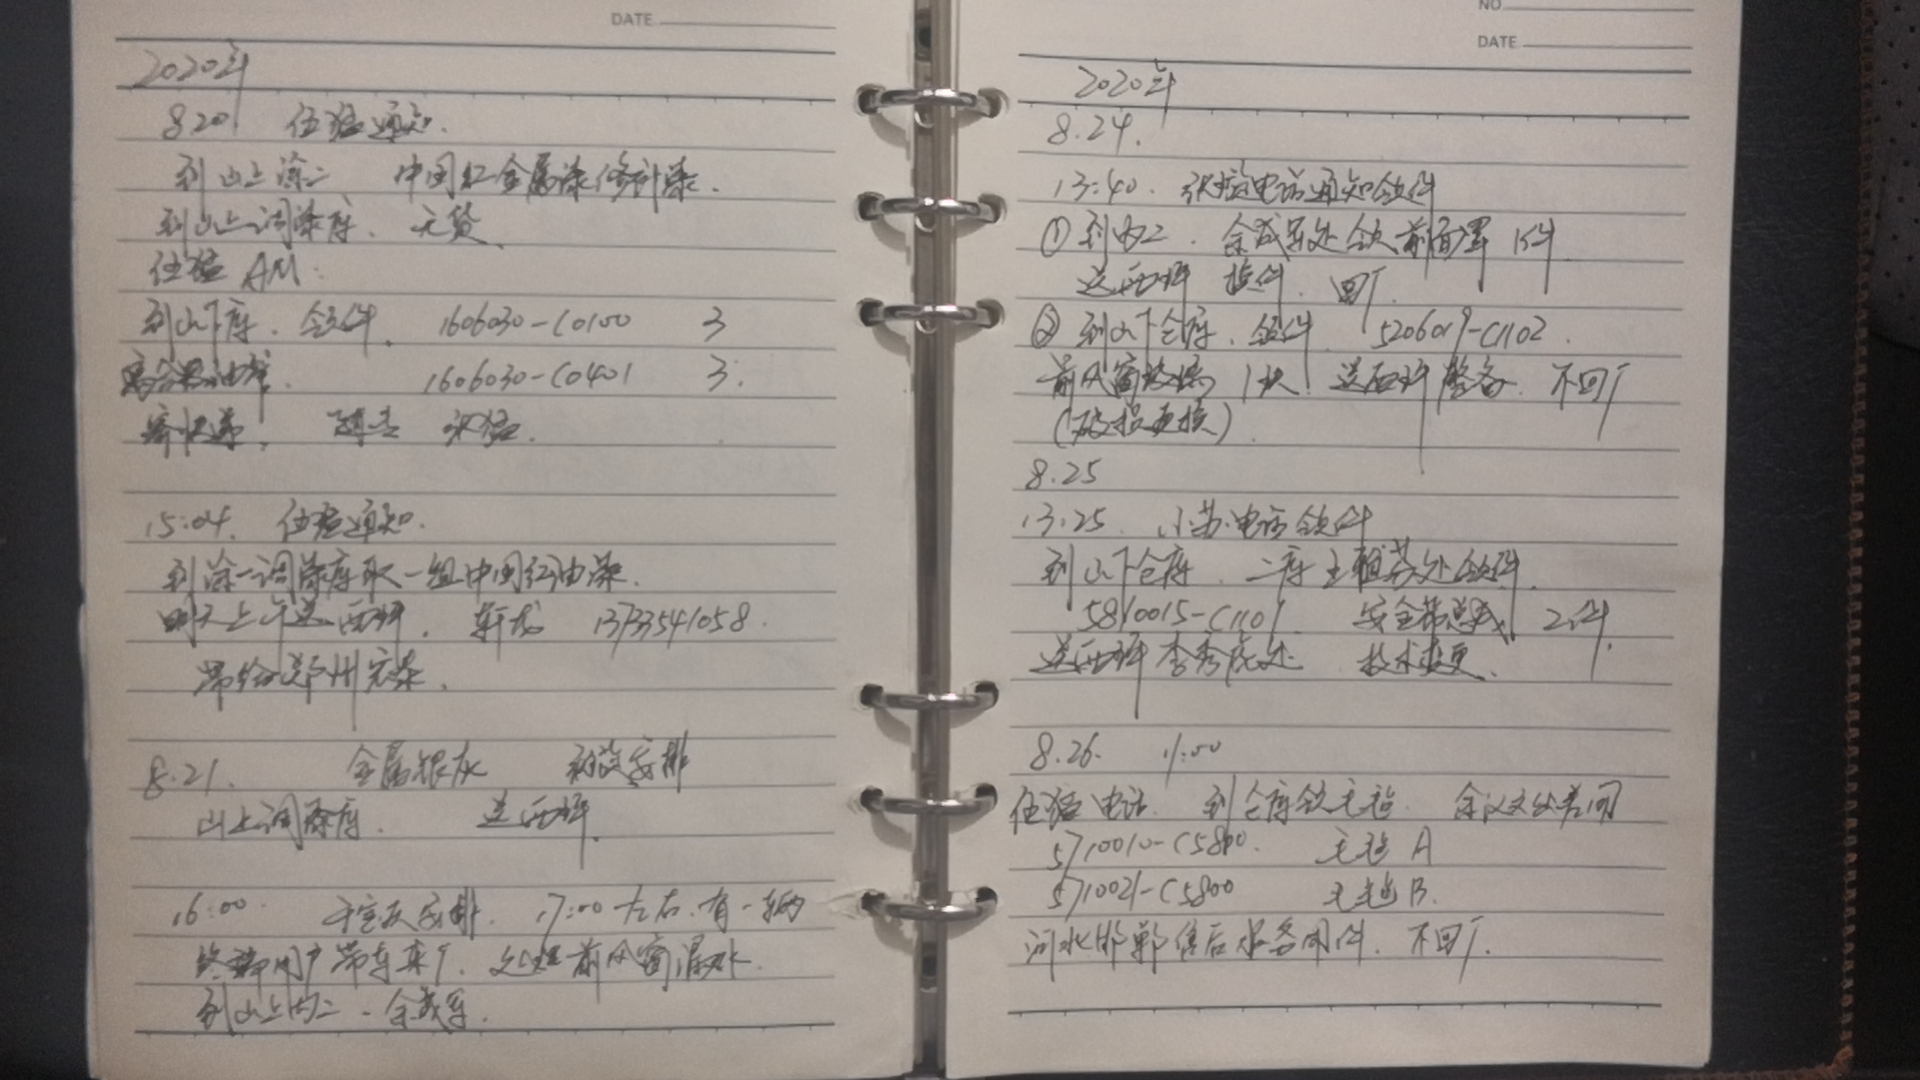 DATE
2020年
8.20 伍猛通知.
到山上涂二、中国红金属漆修补漆.
到山上调漆库. 无货.
伍猛 AM:
到山下库. 领件. 1606030-C0100 3
离合器油管. 1606030-C0401 3.
寄快递. 张猛.
15:04. 伍猛通知.
到涂一调漆库取一组中国红油漆.
明天上午送西坪. 轩龙 13733541058.
带给郑州宏泰.
8.21. 金属银灰 安排
山上调漆库. 送西坪.
16:00. 安排. 17:00左右.有一辆
终端用户带车来厂. 处理前风窗漏水.
到山上内二 - 余成军.
NO
DATE
2020年
8.24.
13:40. 张猛电话通知领件
① 到内二. 余成军处领前面罩 1件
送西坪 换件. 回厂.
② 到山下仓库. 领件 5206019-C1102.
前风窗玻璃 1块! 送西坪整备. 不回厂
(破损更换).
8.25
13:25. 小苏电话领件
到山下仓库. 二库王颖芬处领件.
5810015-C1101 安全带总成 2件.
送西坪李秀成处 技术变更.
8.26. 11:00
伍猛电话. 到仓库领毛毡. 余汉文处
5710010-C5800. 毛毡 A
5710021-C5800 毛毡 B.
河北邯郸售后服务用件. 不回厂.